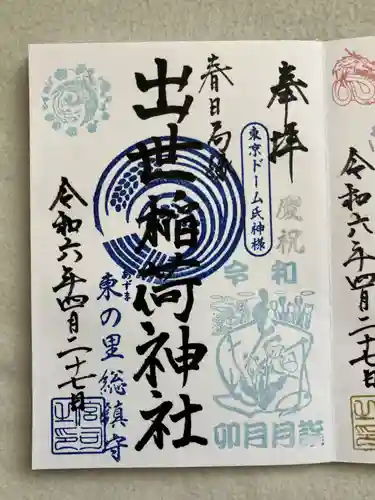 奉拝
慶祝
東京ドーム氏神様
令和
卯月月詣
春日局縁
出世稲荷神社
あずま
東の里総鎮守
令和六年四月二十七日
令和六年四月二十七日